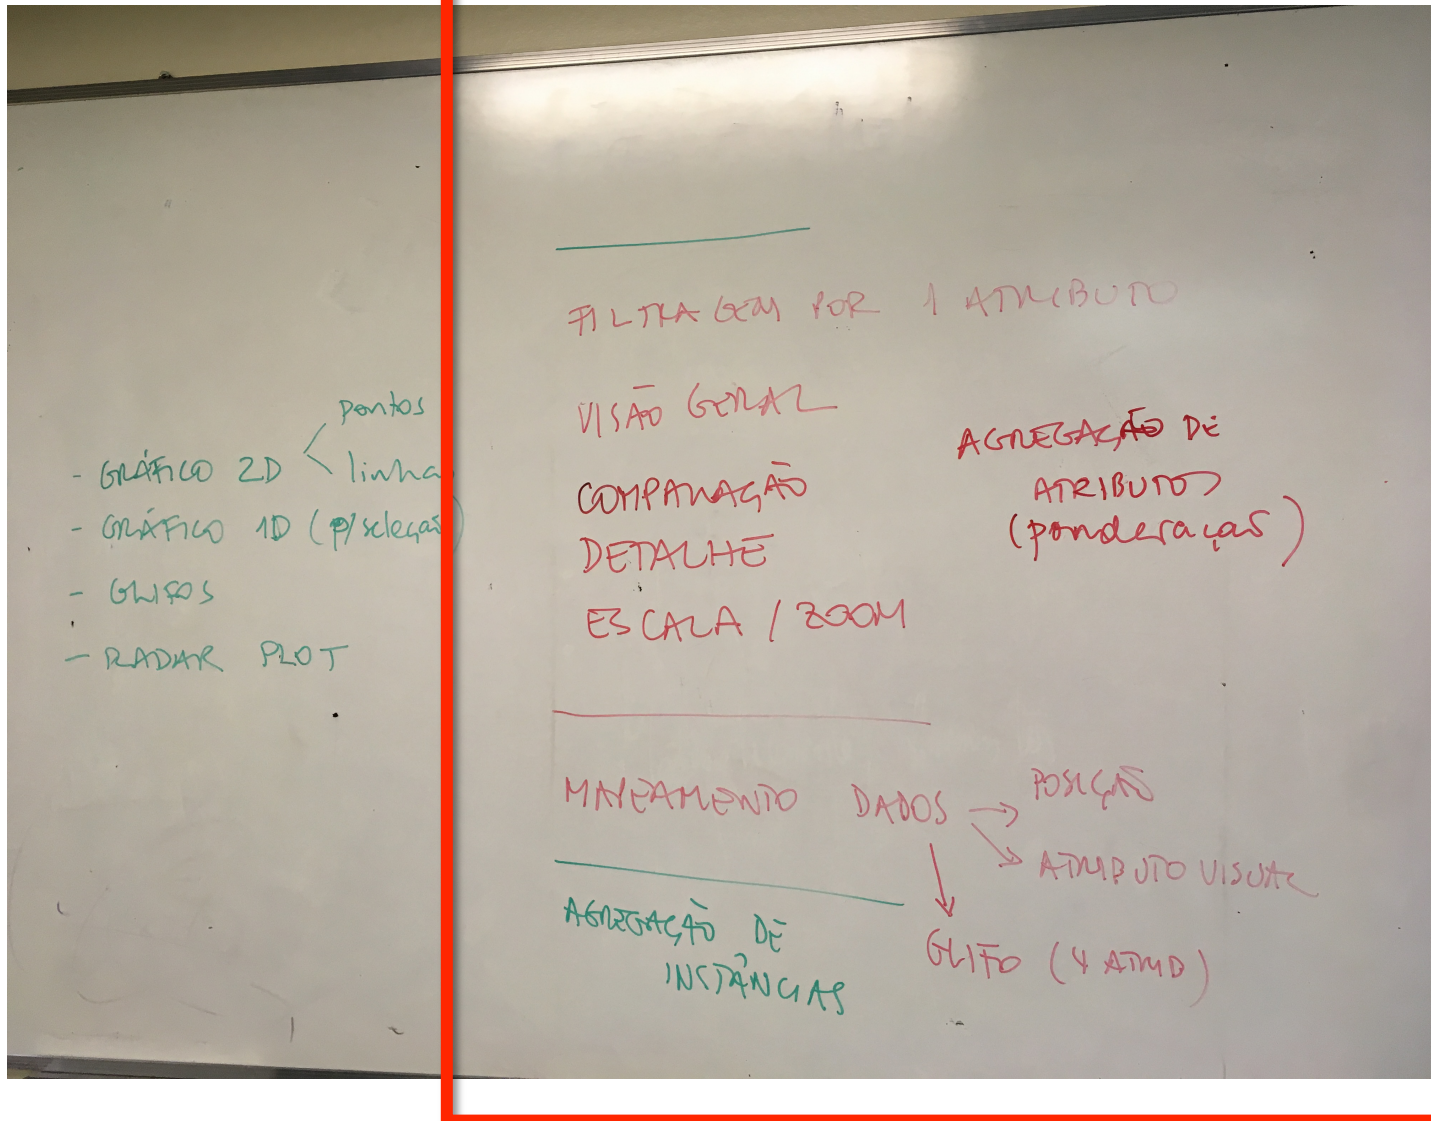 pontos
- GRÁFICO 2D
linhas
- GRÁFICO 1D (p/seleção)
- GLIFOS
- RADAR PLOT
FILTRAGEM POR 1 ATRIBUTO
VISÃO GERAL
COMPARAÇÃO
DETALHE
ESCALA / ZOOM
AGREGAÇÃO DE
ATRIBUTOS
(ponderação)
MAPEAMENTO DADOS → POSIÇÃO
ATRIBUTO VISUAL
GLIFO (4 ATRIB)
AGREGAÇÃO DE
INSTÂNCIAS